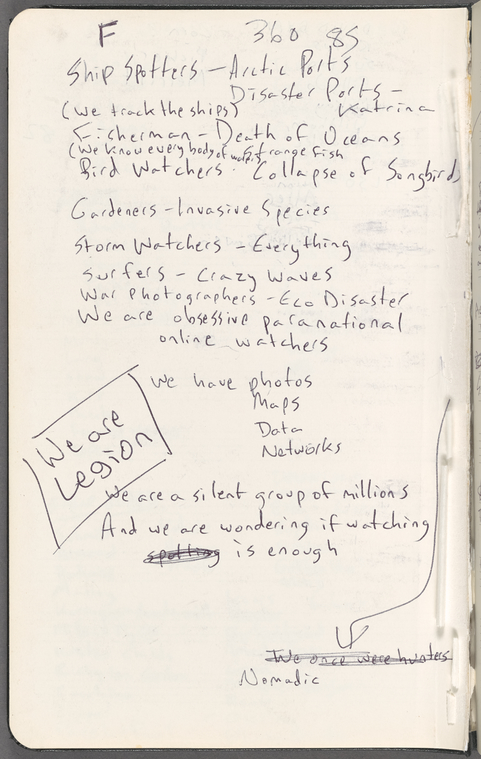 F 360 85
Ship Spotters - Arctic Ports
Disaster Ports -
(We track the ships) Katrina
Fisherman - Death of Oceans
(We know every body of water) Strange Fish
Bird Watchers - Collapse of Songbirds
Gardeners - Invasive Species
Storm Watchers - Everything
Surfers - Crazy Waves
War Photographers - Eco Disaster
We are obsessive paranational
online watchers
We have photos
Maps
Data
Networks
We are
Legion
We are a silent group of millions
And we are wondering if watching
spotting is enough
We once were hunters
Nomadic